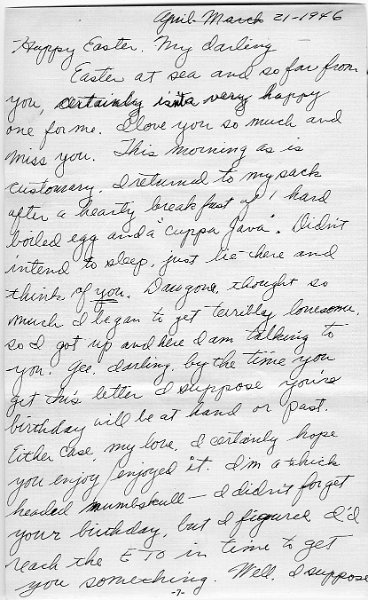 April March 21-1946
Happy Easter, My darling -
Easter at sea and so far from
you, certainly isn't a very happy
one for me. I love you so much and
miss you. This morning as is
customary, I returned to my sack
after a hearty breakfast of 1 hard
boiled egg and a "cuppa Java". Didn't
intend to sleep, just lie there and
think of you. Dawgone, thought so
much I began to get terribly lonesome,
so I got up and here I am talking to
you. Gee, darling, by the time you
get this letter I suppose your's
birthday will be at hand or past.
Either case, my love, I certainly hope
you enjoy/enjoyed it. I'm a thick
headed numbskull — I didn't forget
your birthday, but I figured I'd
reach the ETO in time to get
you something. Well, I suppose